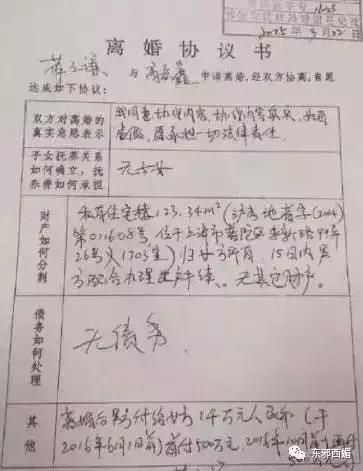 离婚协议书
与 申请离婚,经双方协商,自愿
达成如下协议:
双方对离婚的
真实意思表示
我同意协议内容,协议内容真实,如有
虚假,愿承担一切法律责任.
子女抚养关系
如何确立,抚
养费如何承担
无子女
财产如何分割
私有住宅楼123.34m²(沪房地普字(2014)
第011608号,位于上海市普陀区 路99年
26号 1703室)归女方所有,15日内男
方配合办理过户手续.、无其它财产.
债务如何处理
无债务.
其他
离婚后男付给女方1千万元人民币(于
2015年6月1日前)首付500万元,2015年10月
东邪西媚